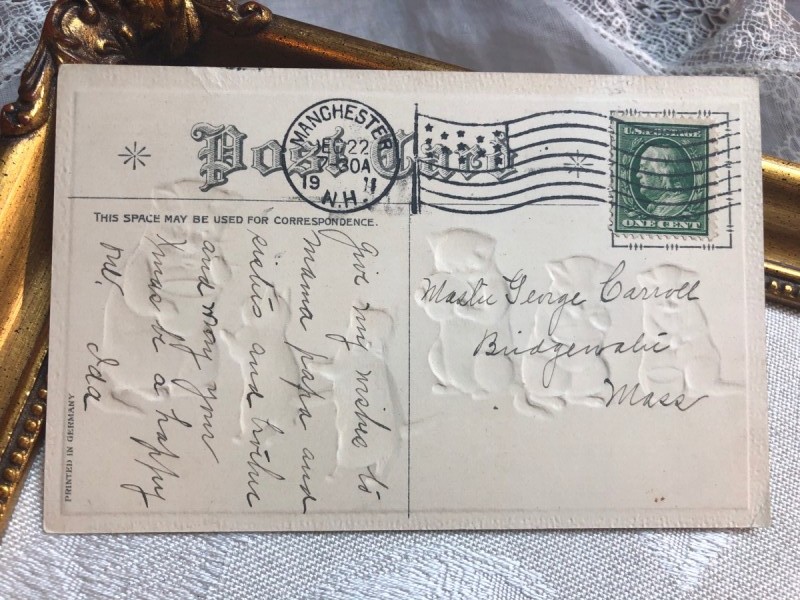 Post Card
MANCHESTER
DEC 22
30A
19 11
N.H.
U.S. POSTAGE
ONE CENT
THIS SPACE MAY BE USED FOR CORRESPONDENCE.
Give my wishes to
mama papa and
sisters and brother
and may your
Xmas be a happy
one.
Ida
Master George Carroll
Bridgewater
Mass
PRINTED IN GERMANY